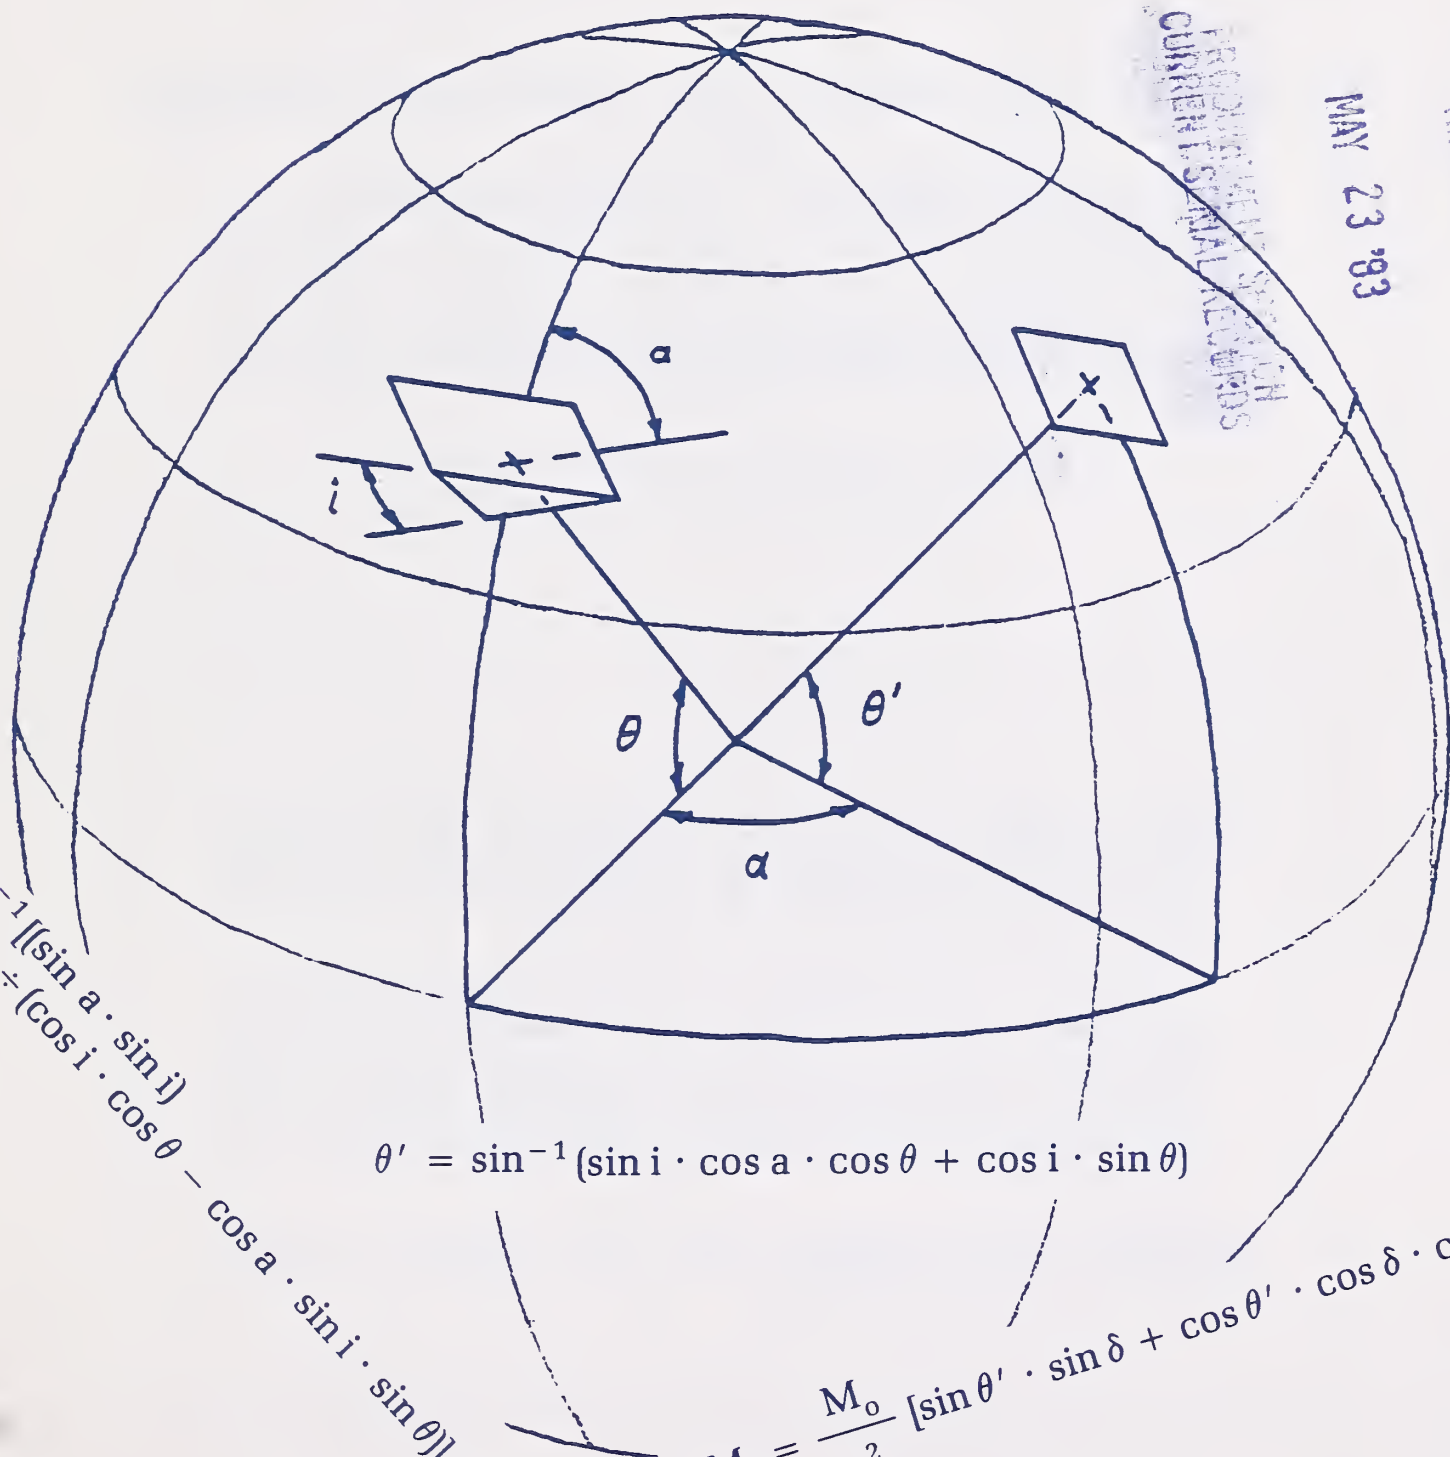 PROCUREMENT SECTION
CURRENT SERIAL RECORDS
MAY 23 '83
a
i
θ
θ'
α
⁻¹[(sin a · sin i)
÷ (cos i · cos θ − cos a · sin i · sin θ)]
θ' = sin⁻¹(sin i · cos a · cos θ + cos i · sin θ)
= M₀/ ₂ [sin θ' · sin δ + cos θ' · cos δ · c